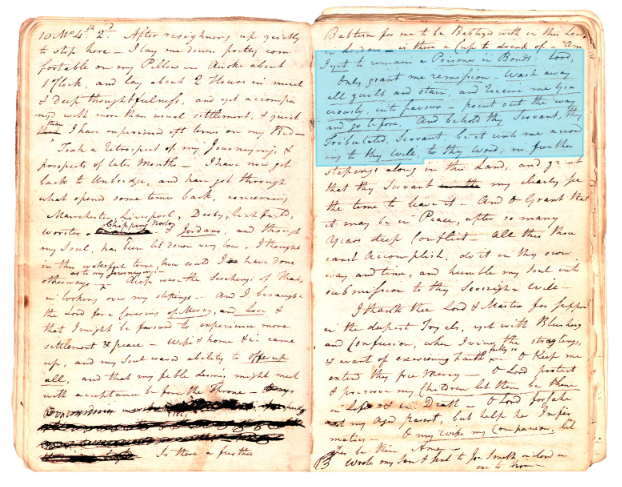 10 Mo 4th 2d After resigning up quietly
to stop here – I lay me down pretty com
fortable on my Pillow – Awoke about
1 oClock, and lay about 2 Hours in much
& Deep thoughtfulness, and yet accompa
ny'd with more than usual settlement, & quiet
than I have experienced oft times on my Bed –
Took a Retrospect of my Journeyings, &
prospects of late Months – I have now got
back to Uxbridge, and have got through
what opend some time back, concerning
Manchester, Liverpool, Derby, Lichfield,
Worcester – Chipping Norton & Jordans, and through
my Soul, has been let down very low, I thought
in this time, how could I have done
otherways – as to my Journeyings – Deep was the Searching of Heart
in looking over my stepings – And I besought
the Lord for a Covering of Mercy, and Love &
that I might be favourd to experience more
settlement & peace – Wife & home &c came
up, and my Soul ability to offer up
all, and that my feble desires might meet
with acceptance before the Throne –
Is there a further
Baptism for me to be Baptized with in this Land
– is there a Cup to drink of – Am
I yet to remain a Prisoner in Bonds: Lord,
Only grant me remission – Wash away
all guilt and stain, and receive me Gra
ciously, into favour – point out the way
and go before, And behold thy Servant, thy
Servant, be it with me accord
ing to thy will, to thy word, in further
stepings along in this Land, and grant
that thy Servant may clearly see
the time to leave it – And O Grant that
it may be in Peace, after so many
Years deep Conflict – All this thou
canst Accomplish, do it in thy own
way and time, and humble my Soul into
submission to thy Sovereign Will –
I thank thee Lord & Master for
in the deepest Toyels, yet with Blushing
and Confusion, when viewing the strugling,
& want of exercising Faith fully – O Keep me
extend thy free Mercy – O Lord protect
& preserve my Children let them be thine
in Life & in Death – O Lord forsake
not my Aged parent, but help her Infir
mities – O my Wife my Companion, let
her be thine Amen –
Wrote my Son & sent to
one to